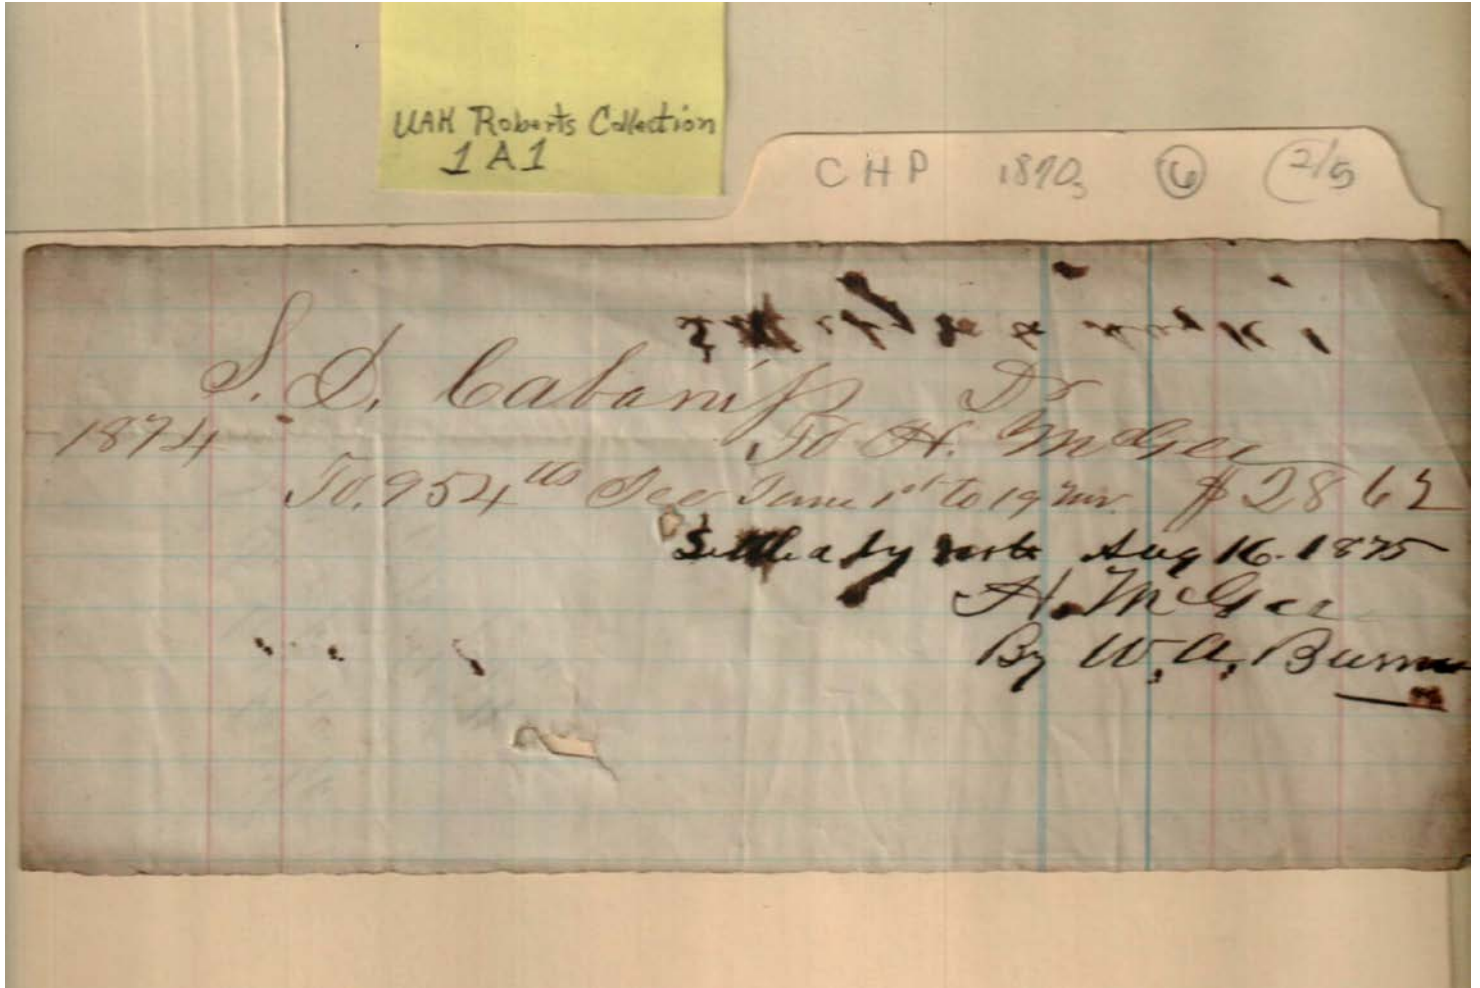 UAH Roberts Collection
1 A 1
CHP 1870s 6 2/5
S. D. Cabaniss Dr
1874 To H. McGee
To. 954 lbs Ice June 1st to 19 $28 62
Settled by note Aug 16. 1875
H. McGee
By W. A.